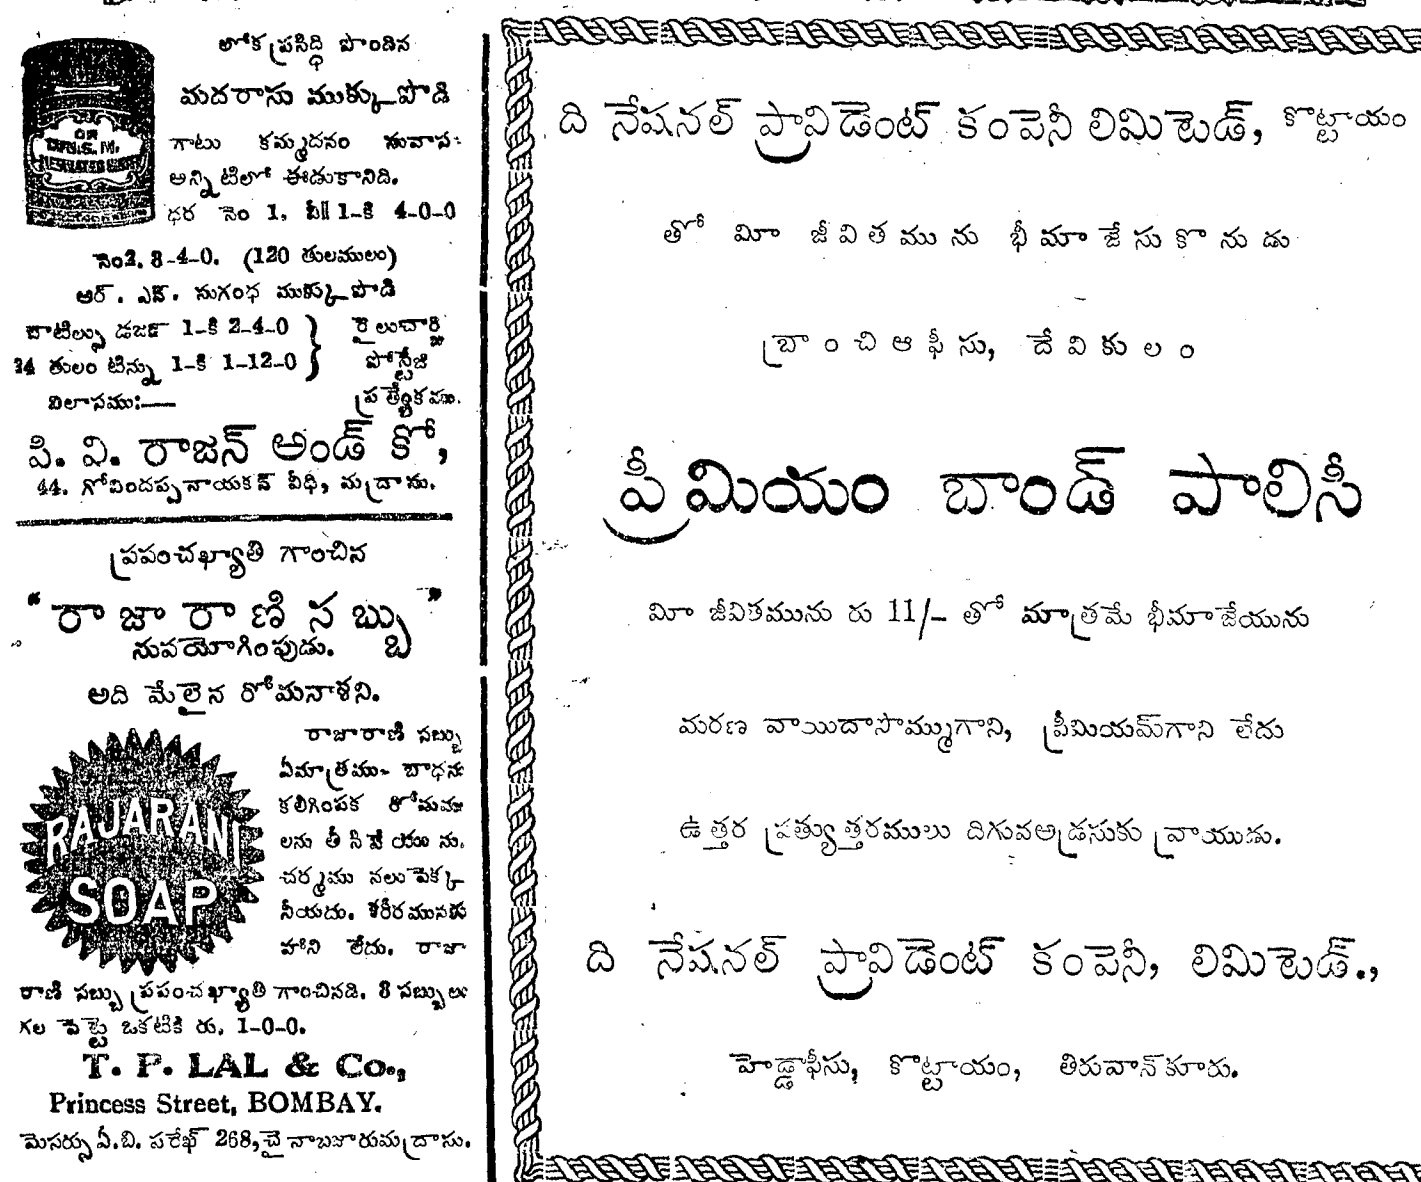 లోకప్రసిద్ధి పొందిన
మదరాసు ముక్కుపొడి
గాటు కమ్మదనం సువాస
అన్నిటిలో ఈడుకానిది.
ధర నెం 1, వీ॥ 1-కి 4-0-0
నెం2. 3-4-0. (120 తులములు)
ఆర్. ఎస్. సుగంధ ముక్కుపొడి
బాటిల్సు డజన్ 1-కి 2-4-0
24 తులం టిన్ను 1-కి 1-12-0
రైలుచార్జి
పోస్టేజి
ప్రత్యేకము.
విలాసము:—
పి. వి. రాజన్ అండ్ కో,
44. గోవిందప్పనాయకన్ వీధి, మద్రాసు.
ప్రపంచఖ్యాతి గాంచిన
“రాజారాణి సబ్బు”
నుపయోగింపుడు.
అది మేలైన రోమనాశని.
RAJARANI
SOAP
రాజారాణి సబ్బు
ఏమాత్రము బాధను
కలిగింపక రోమము
లను తీసివేయును.
చర్మము నలుపెక్క
నీయదు. శరీరమునకు
హాని లేదు. రాజా
రాణి సబ్బు ప్రపంచఖ్యాతి గాంచినది. 3 సబ్బులు
గల పెట్టె ఒకటికి రు. 1-0-0.
T. P. LAL & Co.,
Princess Street, BOMBAY.
మెసర్సు ఏ.బి. పరేఖ్ 268, చైనాబజారు మద్రాసు.
ది నేషనల్ ప్రావిడెంట్ కంపెనీ లిమిటెడ్, కొట్టాయం
తో మీ జీవితమును భీమాజేసుకొనుడు
బ్రాంచిఆఫీసు, దేవికులం
ప్రీమియం బాండ్ పాలిసీ
మీ జీవితమును రు 11/- తో మాత్రమే భీమాజేయును
మరణ వాయిదాసొమ్ముగాని, ప్రీమియమ్‌గాని లేదు
ఉత్తర ప్రత్యుత్తరములు దిగువఅడ్రసుకు వ్రాయుడు.
ది నేషనల్ ప్రావిడెంట్ కంపెనీ, లిమిటెడ్.,
హెడ్డాఫీసు, కొట్టాయం, తిరువాన్‌కూరు.